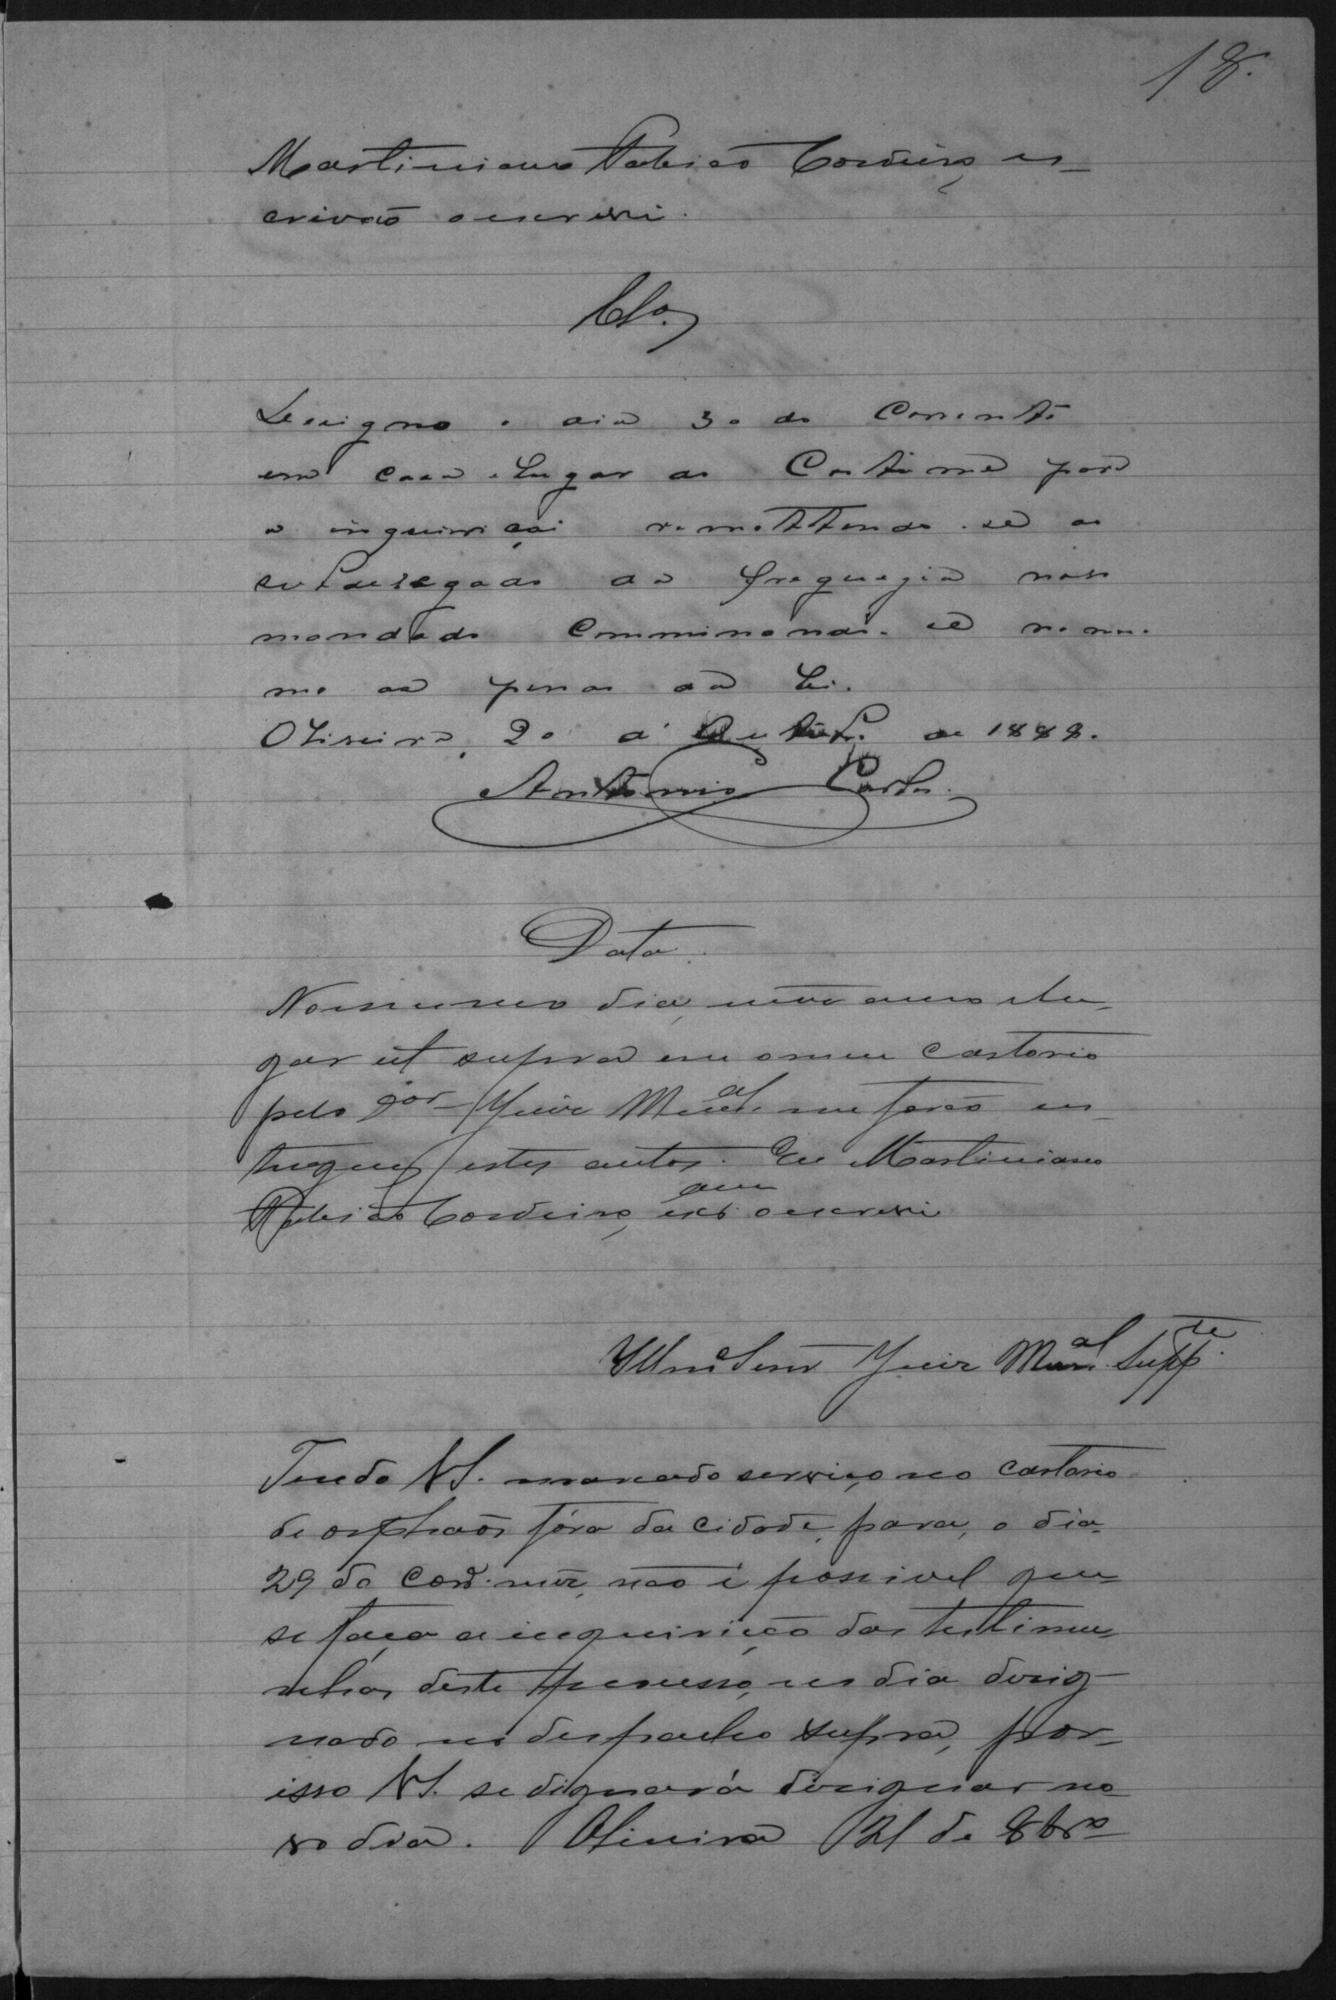 18.
Martiniano Cordeiro, es-
crivão o escrevi.
Clo.
Designo o dia 30 do Corrente
em casa e lugar do Costume para
a inquirição remettendo-se ao
subdelegado da freguezia novo
mandado comminando-se
as penas da Lei.
Oliveira, 20 d' Outubr. de 1888.
Antonio Carlos
Data.
No mesmo dia, mez anno e lu-
gar ut supra em o meu cartorio
pelo Juiz Mual. me forão en-
tregues estes autos. Eu Martiniano
Cordeiro, escam o escrevi
Illmo Senr Juiz Mual. Suppte.
Tendo VS. marcado serviço no cartorio
de orphaõs fóra da cidade, para, o dia
29 do corre. mez, não é possivel que
se faça a inquirição das testimu-
nhas deste processo, no dia desig-
nado no despacho supra, por
isso VS. se dignará designar no-
vo dia. Oliveira 21 de 8bro